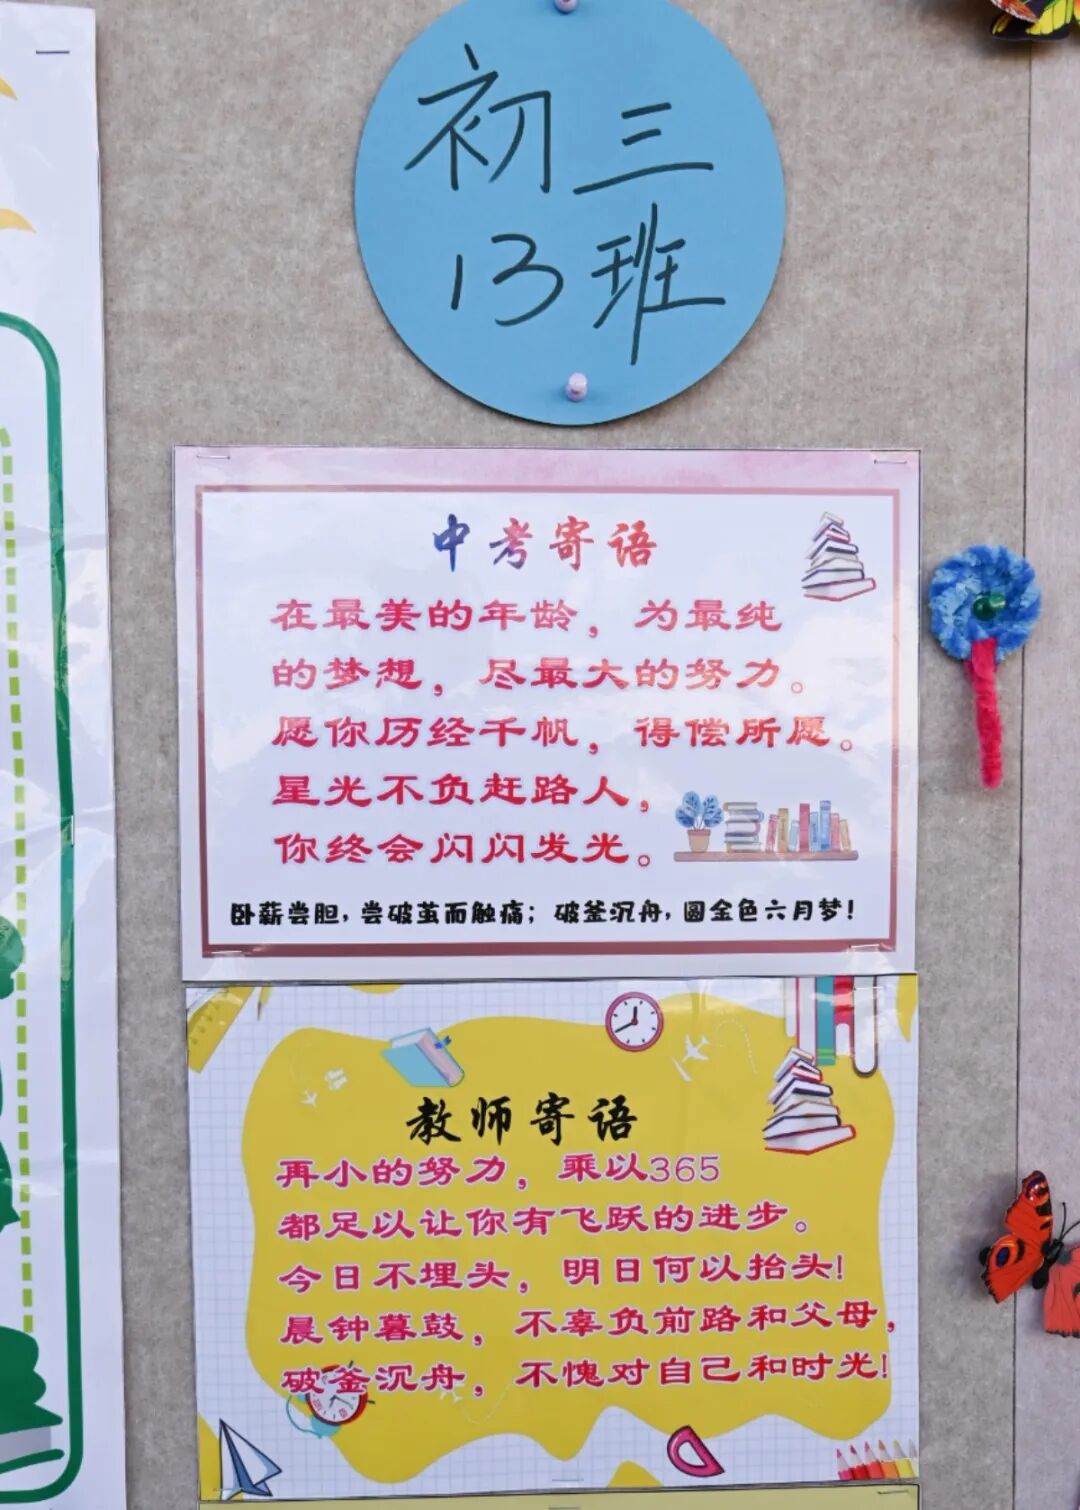 初三
13班
中考寄语
在最美的年龄，为最纯
的梦想，尽最大的努力。
愿你历经千帆，得偿所愿。
星光不负赶路人，
你终会闪闪发光。
卧薪尝胆，尝破茧而触痛；破釜沉舟，圆金色六月梦！
教师寄语
再小的努力，乘以365
都足以让你有飞跃的进步。
今日不埋头，明日何以抬头!
晨钟暮鼓，不辜负前路和父母，
破釜沉舟，不愧对自己和时光!